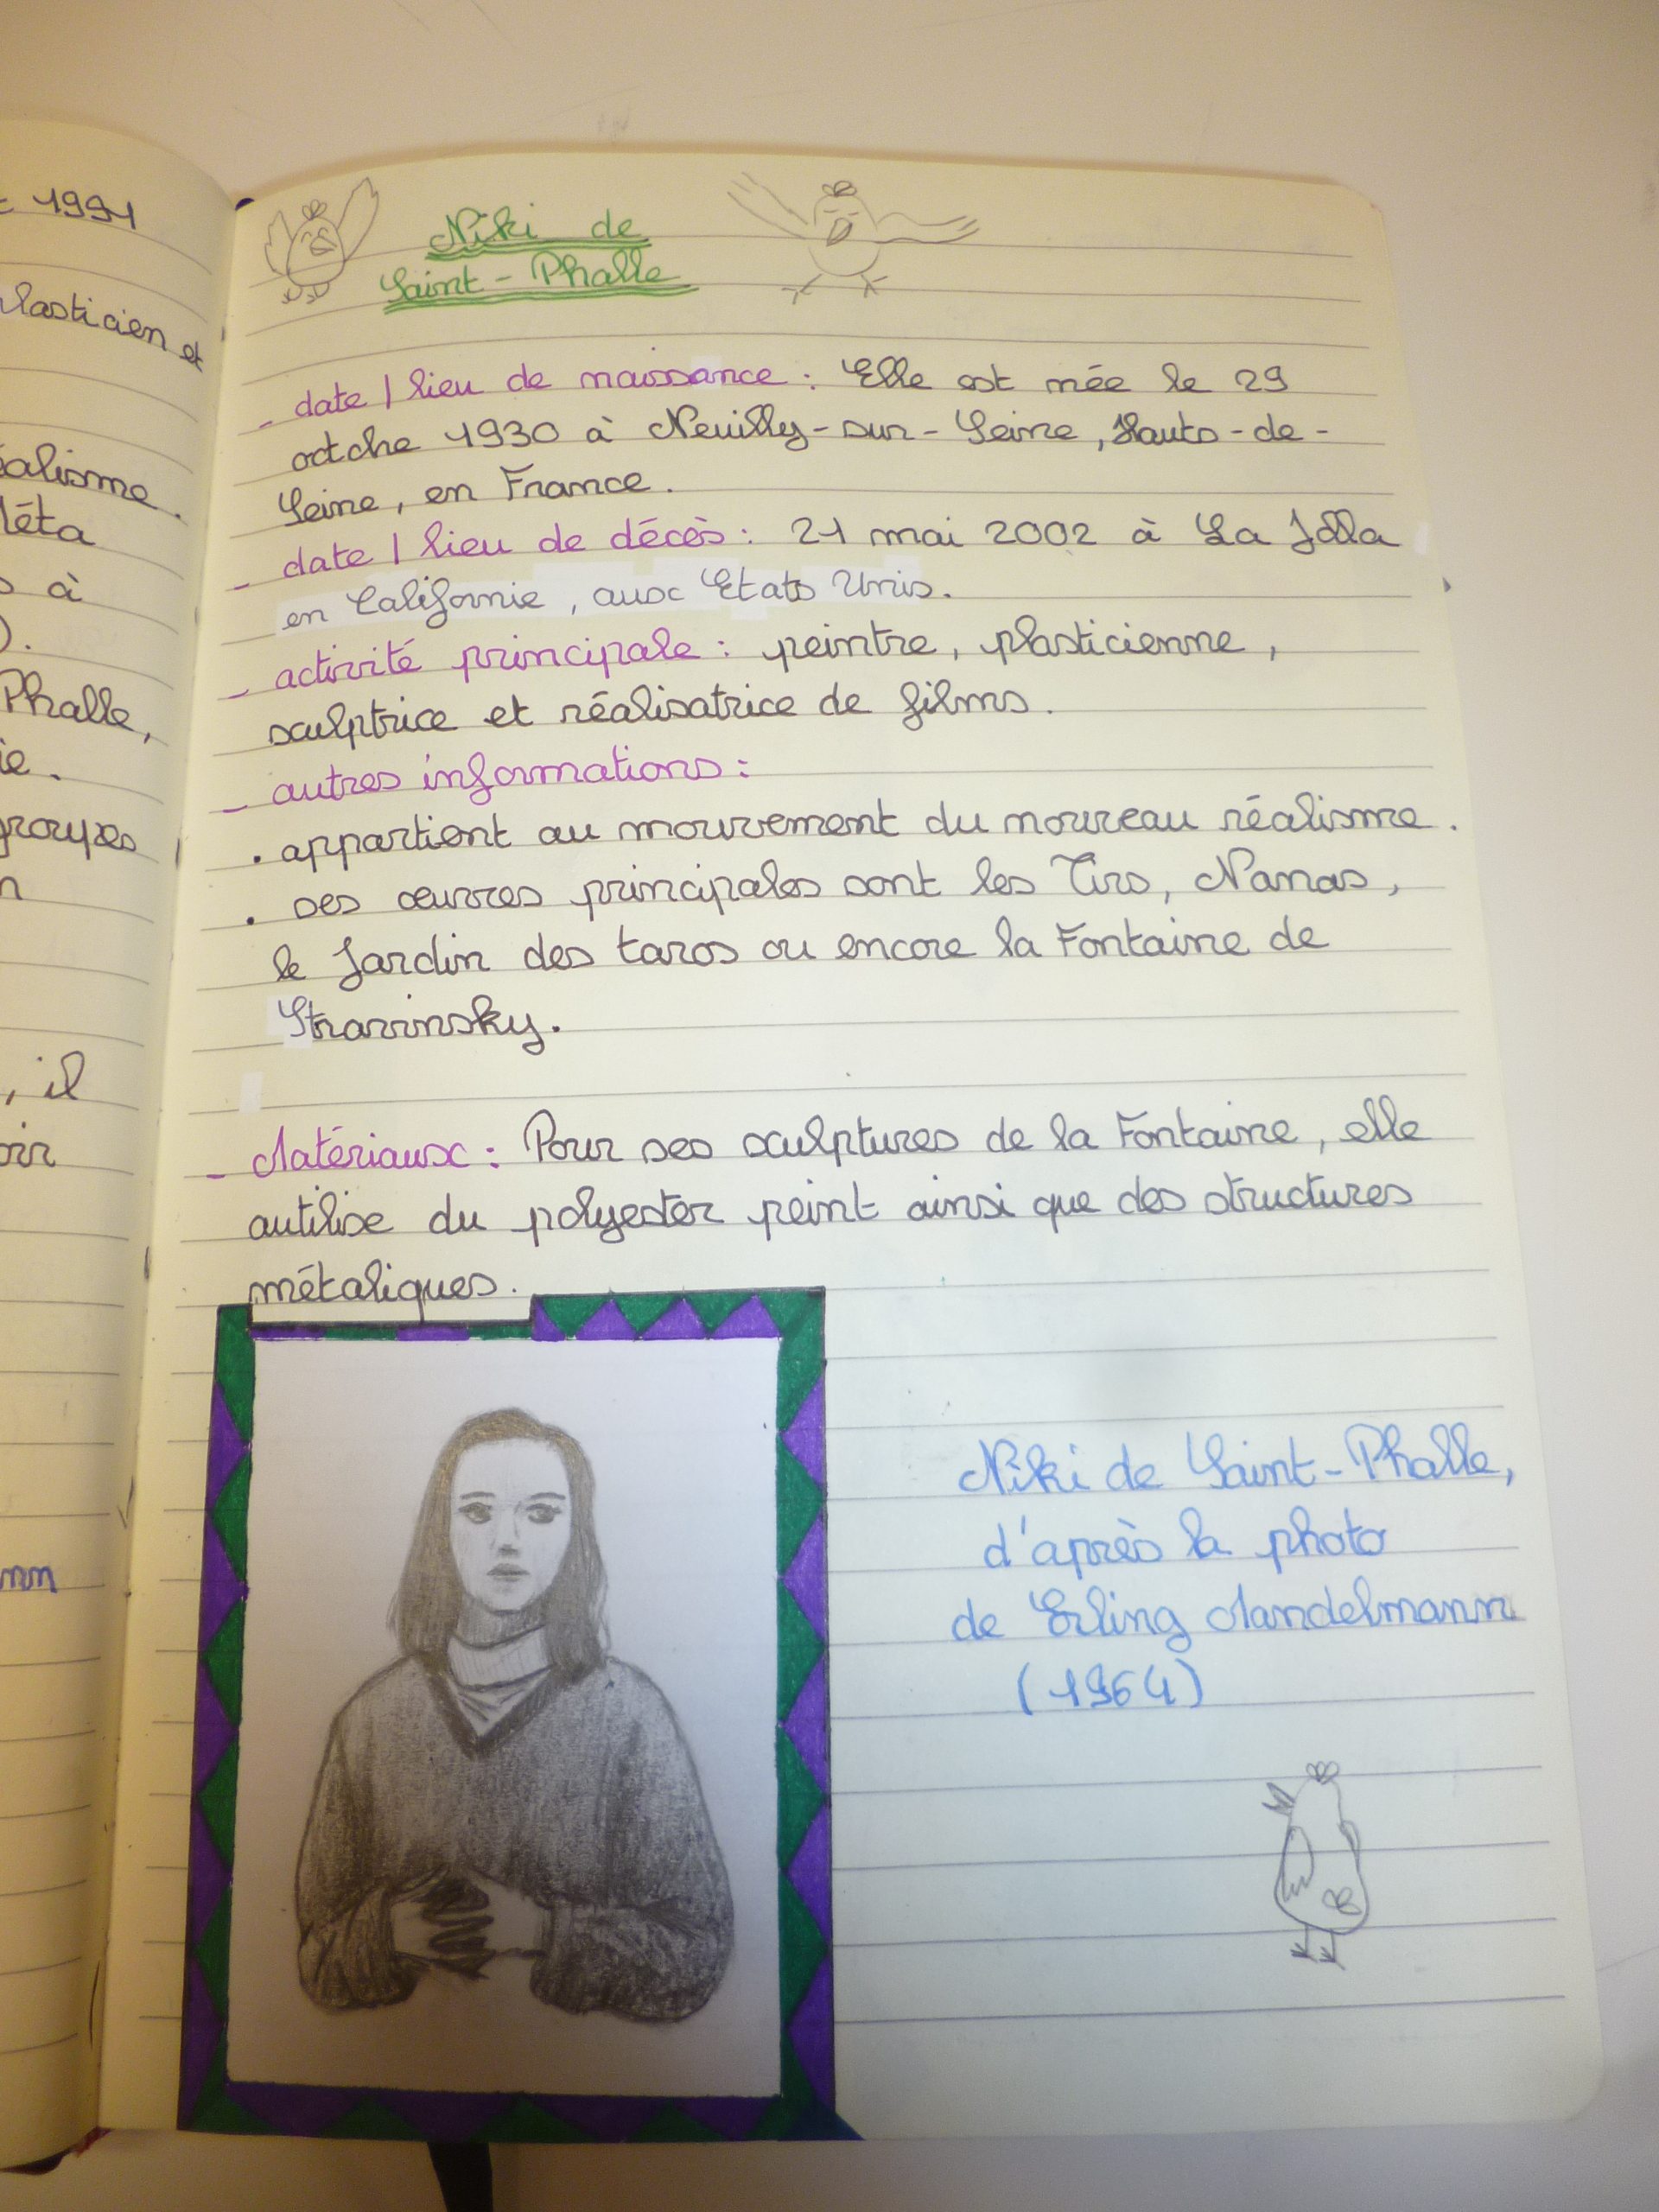 1991
lasticien et
éalisme.
éta
à
).
Phalle,
ie.
groupes
n
, il
oir
nn
Niki de
Saint-Phalle
- date / lieu de naissance : Elle est née le 29
octobre 1930 à Neuilly-sur-Seine, Hauts-de-
Seine, en France.
- date / lieu de décès : 21 mai 2002 à La Jolla
en Californie, aux Etats Unis.
- activité principale : peintre, plasticienne,
sculptrice et réalisatrice de films.
- autres informations :
. appartient au mouvement du nouveau réalisme.
. ses œuvres principales sont les Tirs, Nanas,
le Jardin des taros ou encore la Fontaine de
Stravinsky.
- Matériaux : Pour ses sculptures de la Fontaine, elle
autilise du polyester peint ainsi que des structures
métaliques.
Niki de Saint-Phalle,
d'après la photo
de Erling Mandelmann
(1964)